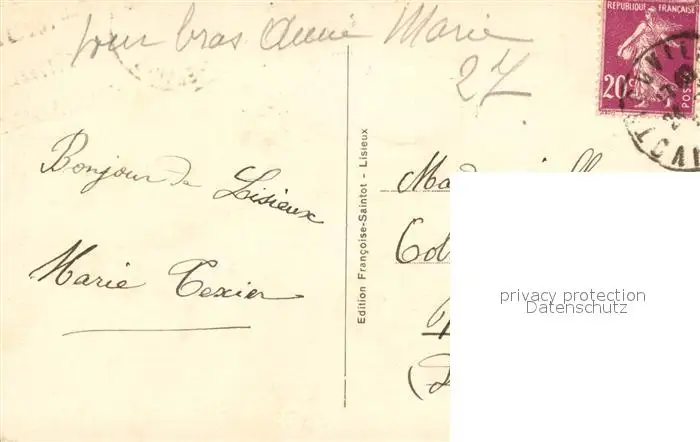 pour bras Annie Marie
27
REPUBLIQUE FRANÇAISE
20c
POSTES
Bonjour de
Lisieux
Marie Texier
Edition Françoise-Saintot - Lisieux
privacy protection
Datenschutz